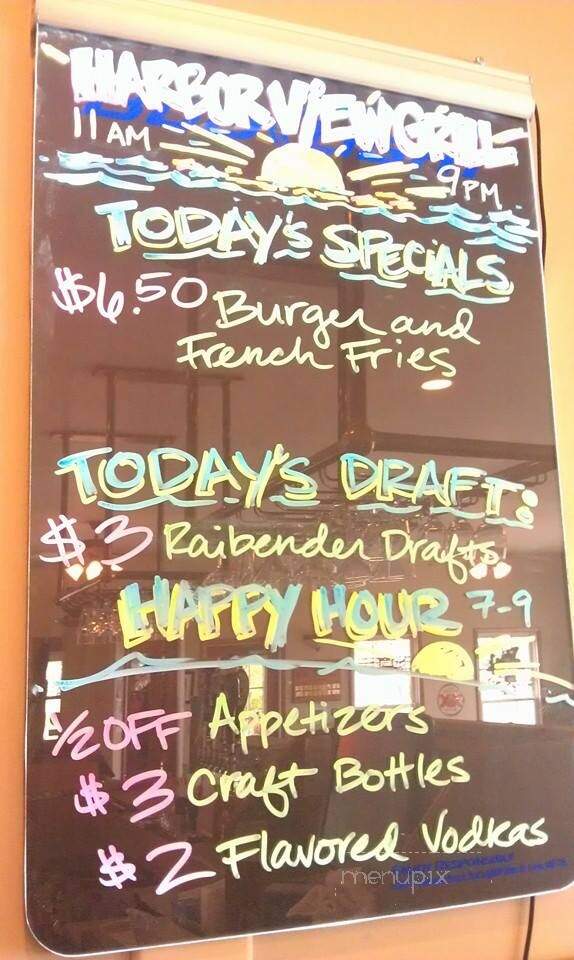 HARBOR VIEW GRILL
11 AM
9 PM
TODAY'S SPECIALS
$6.50 Burger and
French Fries
TODAY'S DRAFT:
$3 Raibender Drafts
HAPPY HOUR 7-9
1/2 OFF Appetizers
$3 Craft Bottles
$2 Flavored Vodkas
RESPONSIBLY
menupix